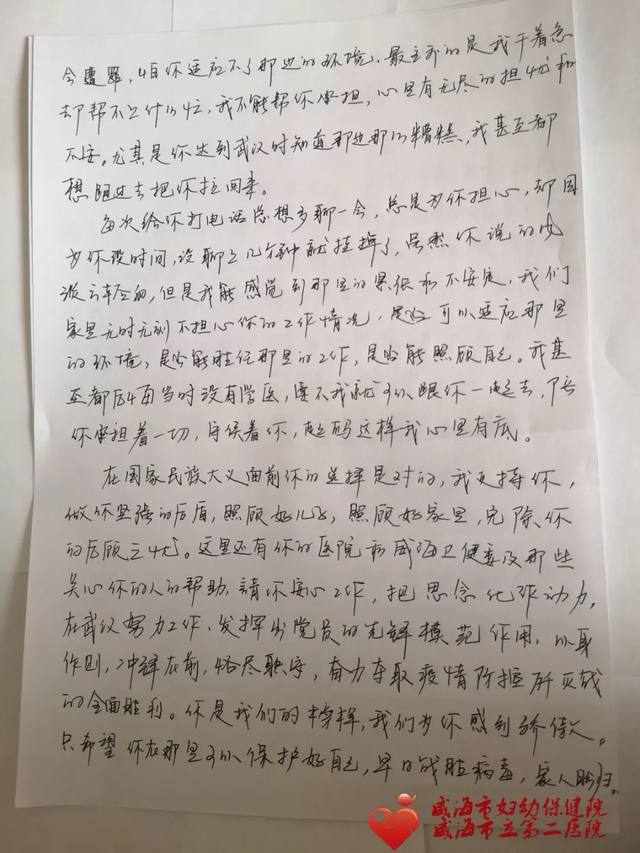 会遭罪，怕你适应不了那边的环境。最主要的是我干着急
却帮不上什么忙，我不能帮你承担，心里有无尽的担忧和
不安。尤其是你达到武汉时知道那边那么糟糕，我甚至都
想跑过去把你拉回来。
每次给你打电话总想多聊一会，总是为你担心，却因
为你没时间，没聊上几分钟就挂掉了，虽然你说的
轻的，但是我能感觉到那里的累很和不安定，我们
家里无时无刻不担心你的工作情况，是否可以适应那里
的环境，是否能胜任那里的工作，是否能照顾自己。我甚
至都后悔当时没有学医，要不我就可以跟你一起去，陪
你承担着一切，守候着你，起码这样我心里有底。
在国家民族大义面前你的选择是对的，我支持你，
做你坚强的后盾，照顾好儿子，照顾好家里，免除你
的后顾之忧。这里还有你的医院和威海卫健委及那些
关心你的人的帮助，请你安心工作，把思念化作动力，
在武汉努力工作、发挥出党员的先锋模范作用，以身
作则，冲锋在前，恪尽职守，奋力夺取疫情防控歼灭战
的全面胜利。你是我们的榜样，我们为你感到骄傲。
只希望你在那里可以保护好自己，早日战胜病毒，家人盼归。
威海市妇幼保健院
威海市立第二医院